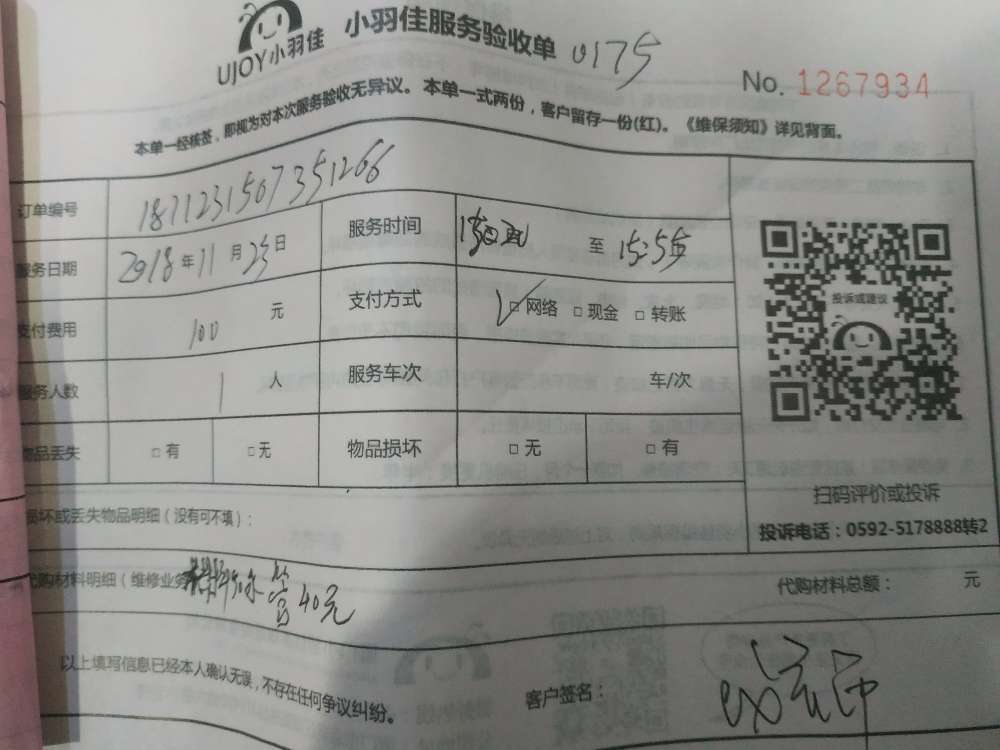 UJOY小羽佳 小羽佳服务验收单 0175
No. 1267934
本单一经核签,即视为对本次服务验收无异议。本单一式两份,客户留存一份(红)。《维保须知》详见背面。
订单编号 18711231507351266
服务日期 2018年11月23日 服务时间 至 15:55
支付费用 100 元 支付方式 □网络 □现金 □转账
服务人数 1 人 服务车次 车/次
物品丢失 □有 □无 物品损坏 □无 □有
投诉或建议
扫码评价或投诉
投诉电话:0592-5178888转2
损坏或丢失物品明细(没有可不填):
代购材料明细(维修业务 管40元 代购材料总额: 元
以上填写信息已经本人确认无误,不存在任何争议纠纷。 客户签名: